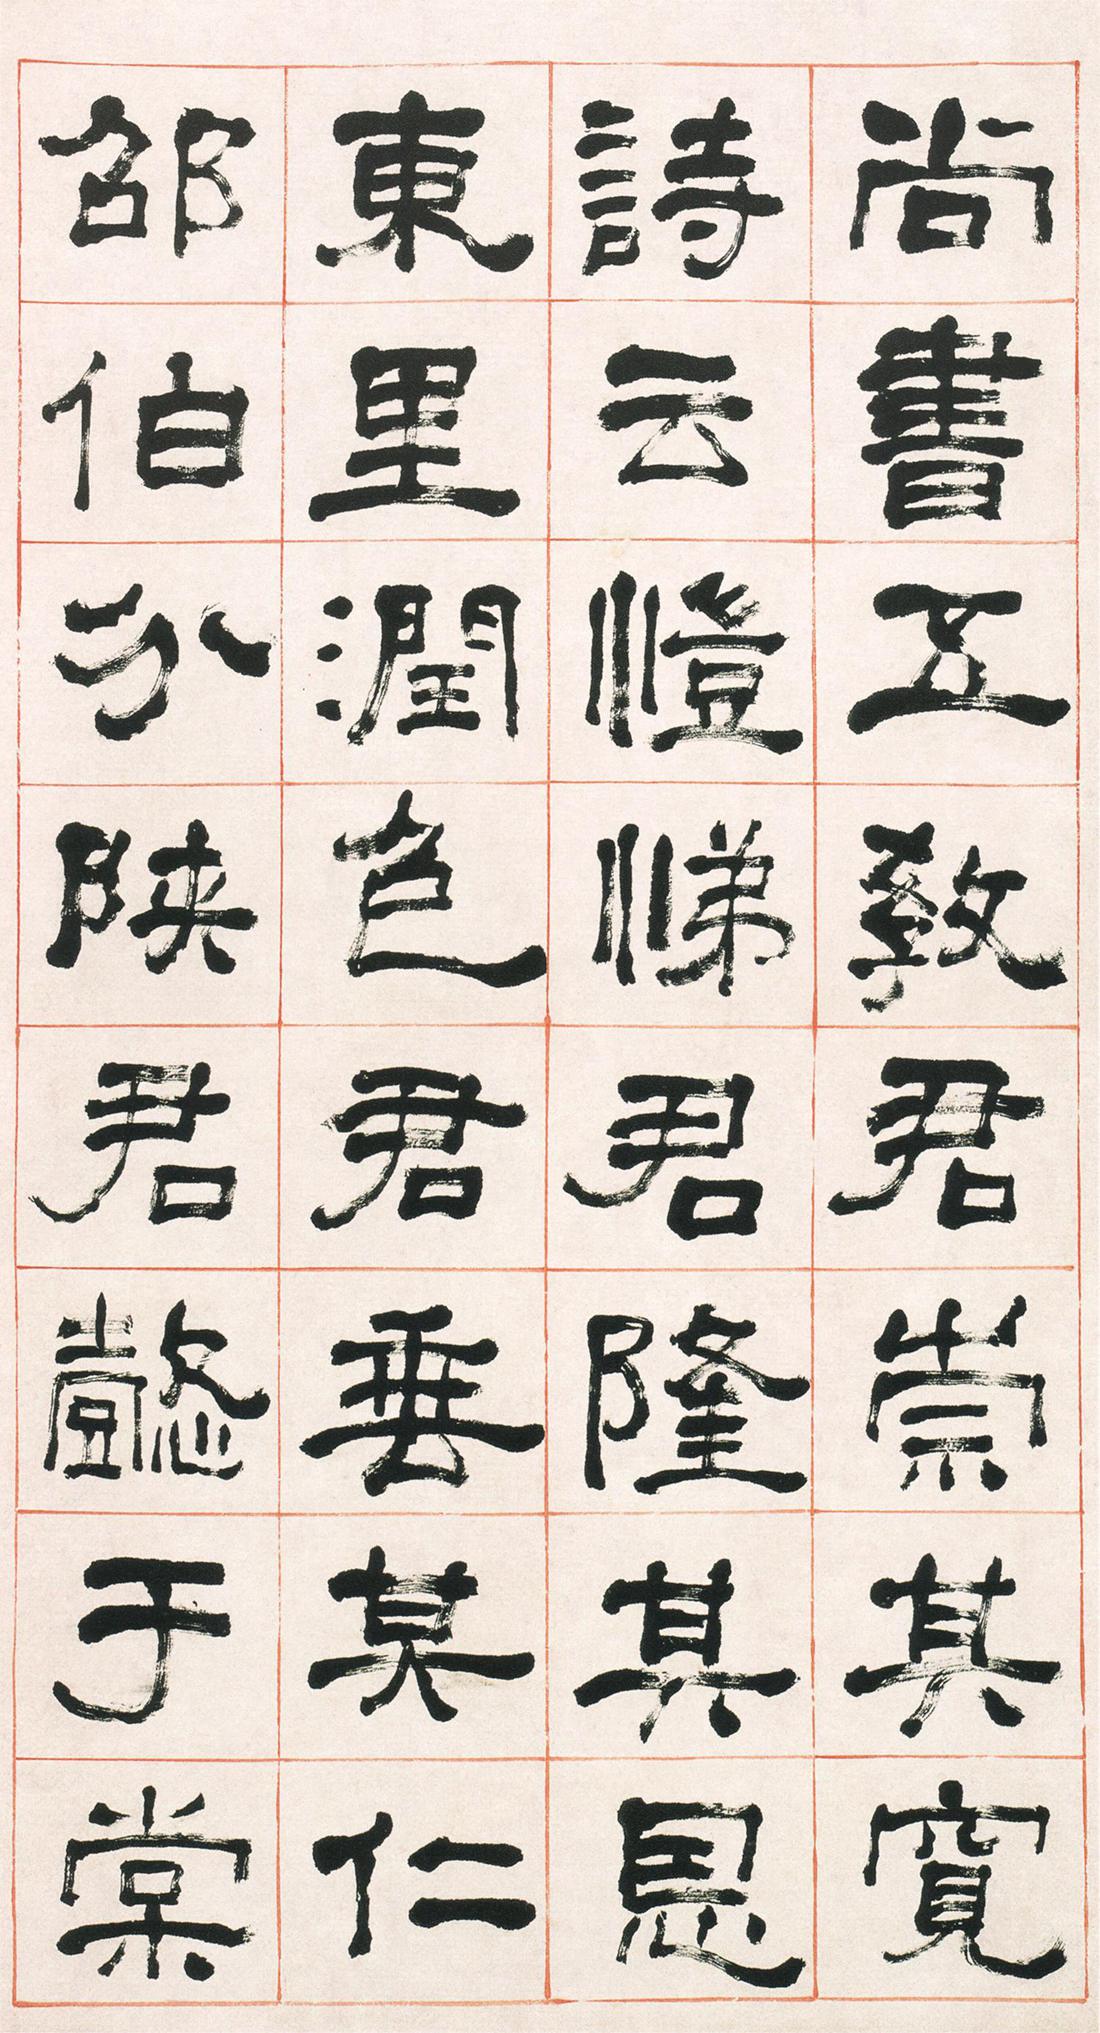 尚書五教君崇其寬
詩云愷悌君隆其恩
東里潤色君垂其仁
邵伯分陝君懿于棠